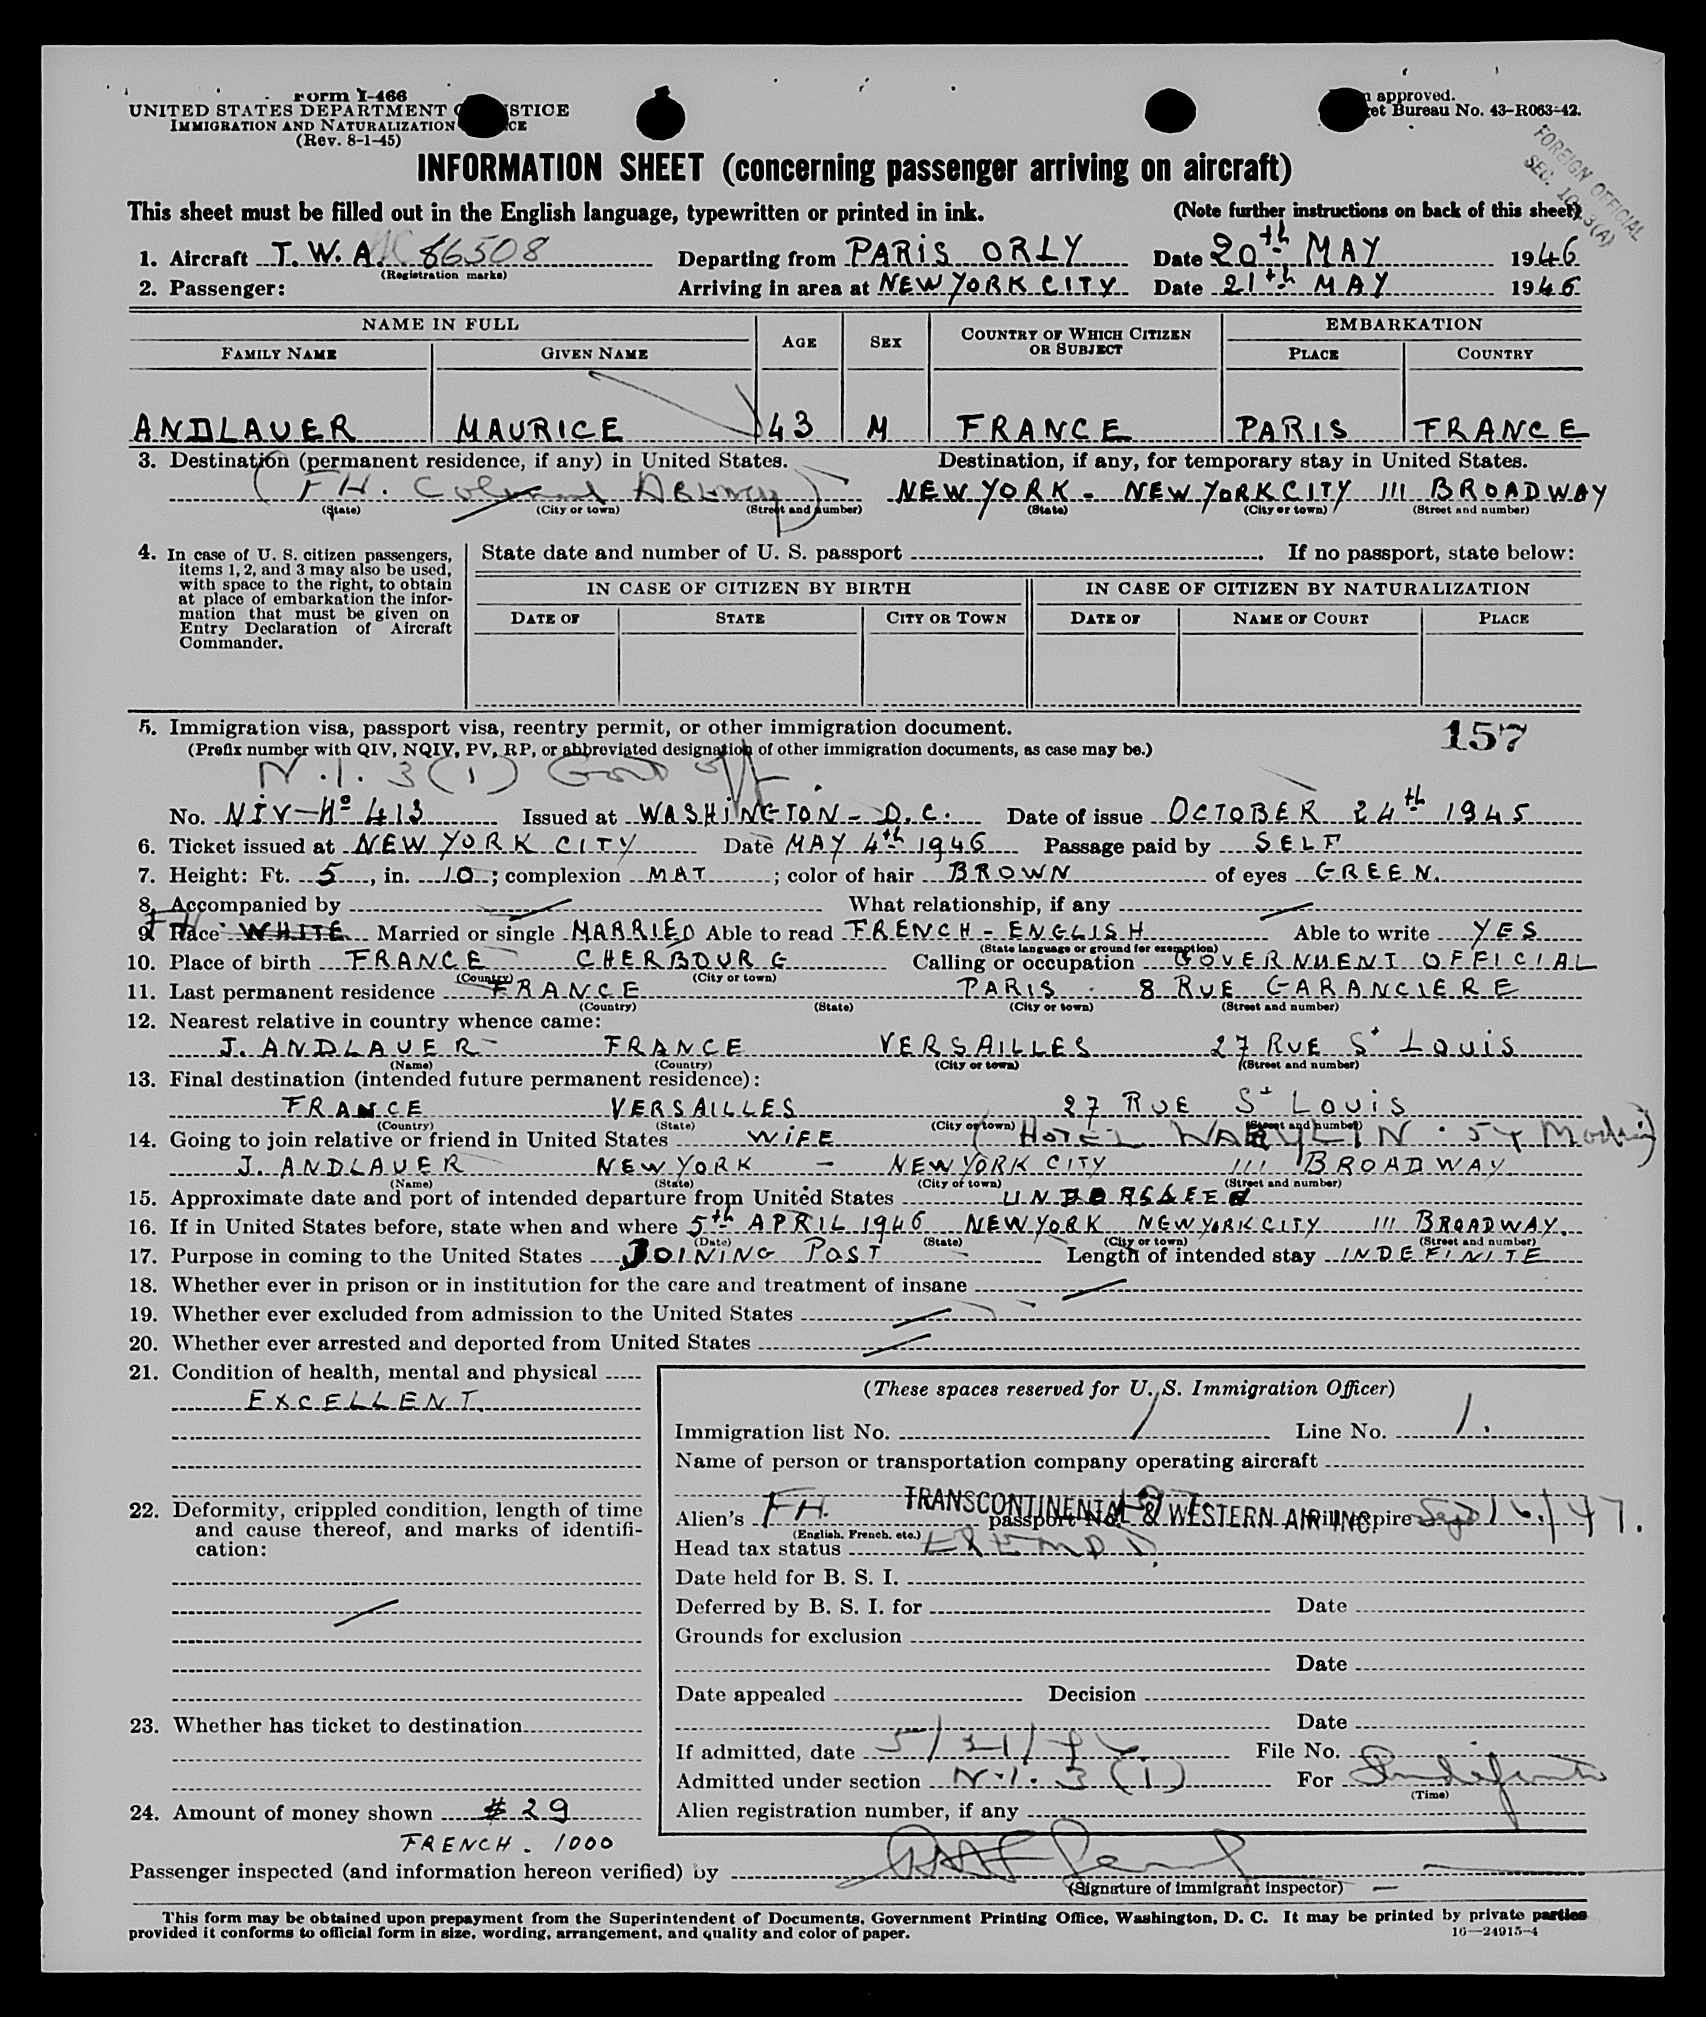 Form I-466
UNITED STATES DEPARTMENT STICE
IMMIGRATION AND NATURALIZATION CE
(Rev. 8-1-45)
approved.
et Bureau No. 43-R063-42.
FOREIGN OFFICIAL
INFORMATION SHEET (concerning passenger arriving on aircraft)
This sheet must be filled out in the English language, typewritten or printed in ink. (Note further instructions on back of this sheet)
1. Aircraft T.W.A. NC 86508 Departing from PARIS ORLY Date 20th MAY 1946
(Registration marks)
2. Passenger: Arriving in area at NEW YORK CITY Date 21th MAY 1946
NAME IN FULL AGE SEX COUNTRY OF WHICH CITIZEN OR SUBJECT EMBARKATION
FAMILY NAME GIVEN NAME PLACE COUNTRY
ANDLAUER MAURICE 43 M FRANCE PARIS FRANCE
3. Destination (permanent residence, if any) in United States. Destination, if any, for temporary stay in United States.
(FH. NEW YORK - NEW YORK CITY 111 BROADWAY
(State) (City or town) (Street and number) (State) (City or town) (Street and number)
4. In case of U. S. citizen passengers, items 1, 2, and 3 may also be used, with space to the right, to obtain at place of embarkation the information that must be given on Entry Declaration of Aircraft Commander.
State date and number of U. S. passport . If no passport, state below:
IN CASE OF CITIZEN BY BIRTH IN CASE OF CITIZEN BY NATURALIZATION
DATE OF STATE CITY OR TOWN DATE OF NAME OF COURT PLACE
5. Immigration visa, passport visa, reentry permit, or other immigration document. 157
(Prefix number with QIV, NQIV, PV, RP, or abbreviated designation of other immigration documents, as case may be.)
N.I. 3 (1) Govt off
No. NIV-Nº 413 Issued at WASHINGTON - D.C. Date of issue OCTOBER 24th 1945
6. Ticket issued at NEW YORK CITY Date MAY 4th 1946 Passage paid by SELF
7. Height: Ft. 5, in. 10; complexion MAT; color of hair BROWN of eyes GREEN.
8. Accompanied by What relationship, if any
9. Race WHITE FH Married or single MARRIED Able to read FRENCH - ENGLISH Able to write YES
(State language or ground for exemption)
10. Place of birth FRANCE CHERBOURG Calling or occupation GOVERNMENT OFFICIAL
(Country) (City or town)
11. Last permanent residence FRANCE PARIS 8 RUE GARANCIERE
(Country) (State) (City or town) (Street and number)
12. Nearest relative in country whence came:
J. ANDLAUER FRANCE VERSAILLES 27 RUE St LOUIS
(Name) (Country) (City or town) (Street and number)
13. Final destination (intended future permanent residence):
FRANCE VERSAILLES 27 RUE St LOUIS
(Country) (State) (City or town) (Street and number)
14. Going to join relative or friend in United States WIFE (HOTEL
J. ANDLAUER NEW YORK - NEW YORK CITY 111 BROADWAY
(Name) (State) (City or town) (Street and number)
15. Approximate date and port of intended departure from United States
16. If in United States before, state when and where 5th APRIL 1946 NEW YORK NEW YORK CITY 111 BROADWAY.
(Date) (State) (City or town) (Street and number)
17. Purpose in coming to the United States JOINING POST Length of intended stay INDEFINITE
18. Whether ever in prison or in institution for the care and treatment of insane
19. Whether ever excluded from admission to the United States
20. Whether ever arrested and deported from United States
21. Condition of health, mental and physical
EXCELLENT.
22. Deformity, crippled condition, length of time and cause thereof, and marks of identification:
23. Whether has ticket to destination
24. Amount of money shown $ 29
FRENCH. 1000
(These spaces reserved for U. S. Immigration Officer)
Immigration list No. 1 Line No. 1.
Name of person or transportation company operating aircraft
TRANSCONTINENTAL & WESTERN AIR INC.
Alien's FH. passport No. will expire Sept 16/47.
(English, French, etc.)
Head tax status EXEMPT
Date held for B. S. I.
Deferred by B. S. I. for Date
Grounds for exclusion
Date
Date appealed Decision
Date
If admitted, date 5/21/46. File No.
Admitted under section N.I. 3 (1) For Indefinite
(Time)
Alien registration number, if any
Passenger inspected (and information hereon verified) by
(Signature of immigrant inspector)
This form may be obtained upon prepayment from the Superintendent of Documents, Government Printing Office, Washington, D. C. It may be printed by private parties
provided it conforms to official form in size, wording, arrangement, and quality and color of paper. 16—24915-4